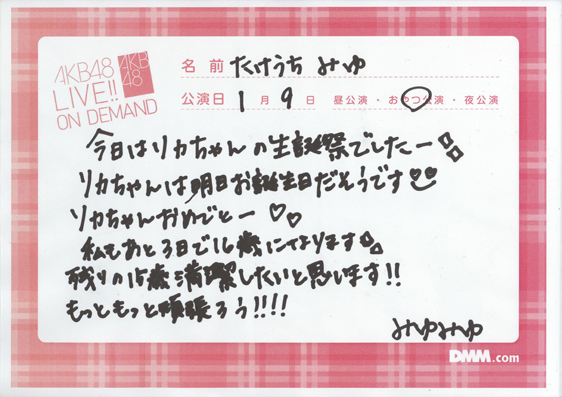 AKB48
LIVE!!
ON DEMAND
AKB
48
名前 たけうち みゆ
公演日 1月9日 昼公演・おやつ公演・夜公演
今日はリカちゃんの生誕祭でしたー
リカちゃんは明日お誕生日だそうです
リカちゃんおめでとー♡♡
私もあと3日で16歳になります
残りの15歳満喫したいと思います!!
もっともっと頑張ろう!!!!
みゆみゆ
DMM.com